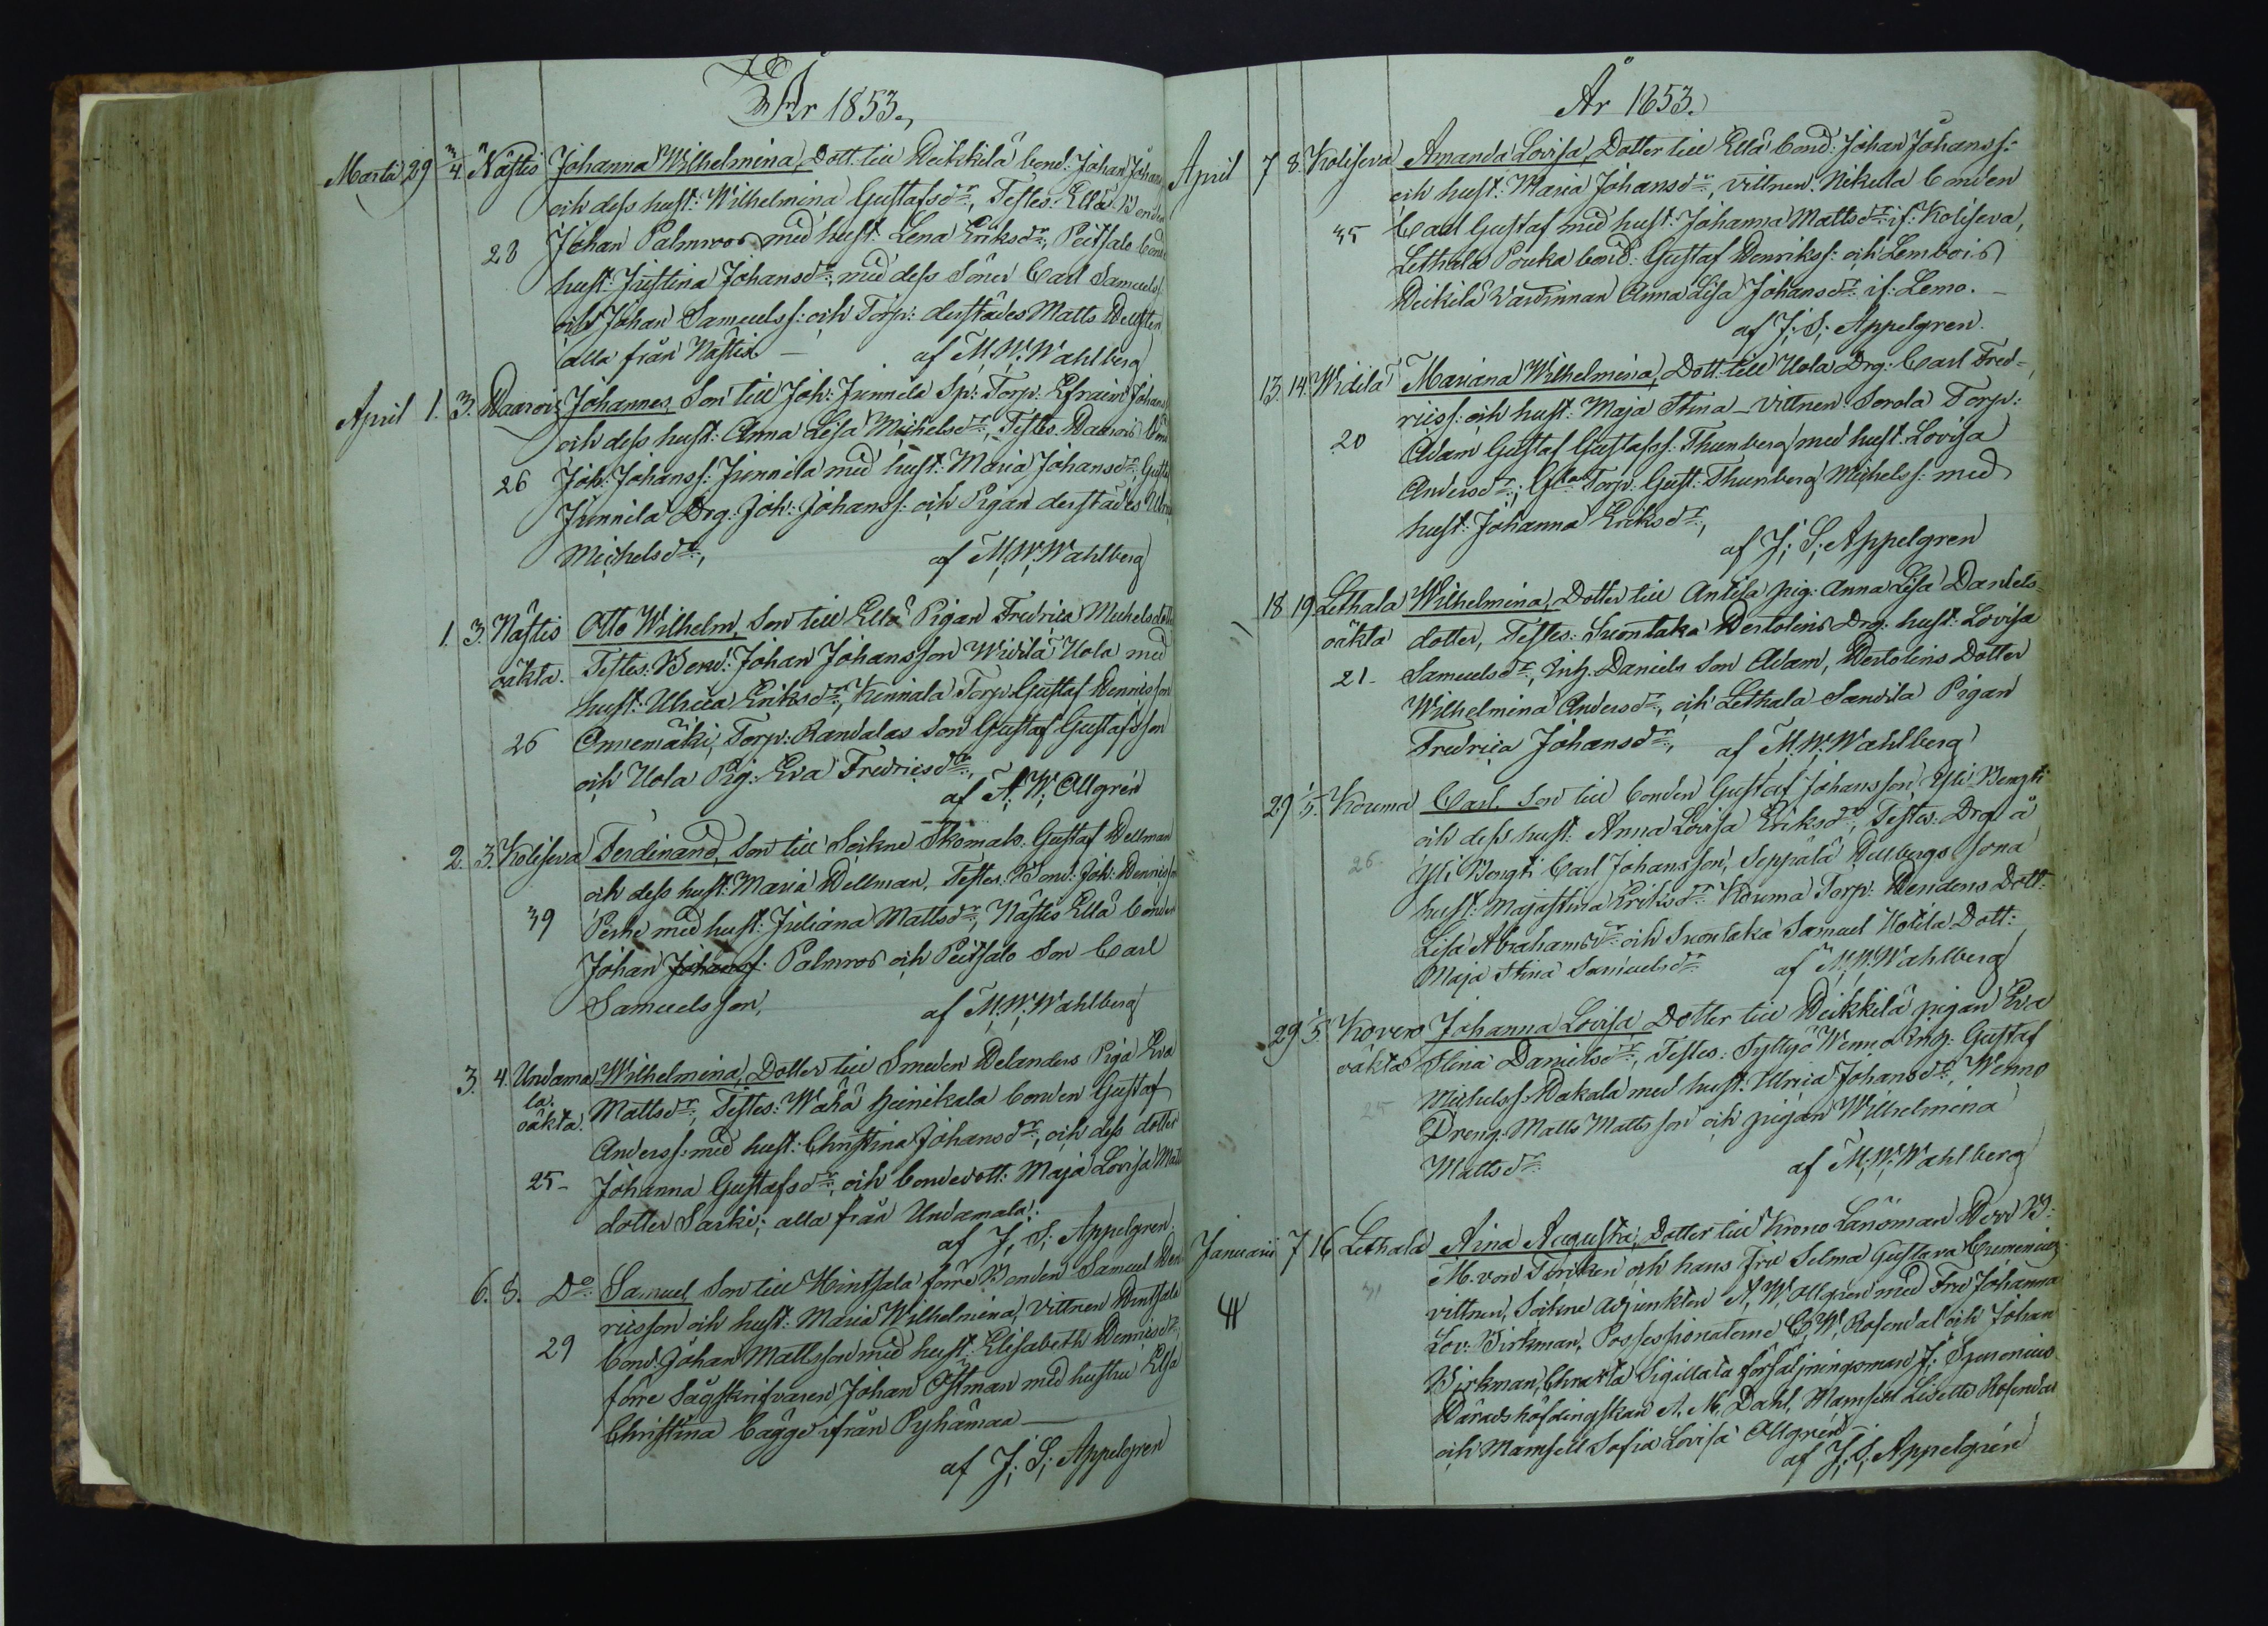 År 1853.
Martii 29 3/4. Nästis Johanna Wilhelmina, Dott. till Heikkilä bond: Johan Johans
och dess hust: Wilhelmina Gustafsdr, Testes: Ellä Bonden
28 Johan Palmroos med hust: Lena Eriksdr, Peitsalo bond
hust: Justina Johansdr, med dess Söner Carl Samuelss:
och Johan Samuelss: och Torp: derstädes Matts Hellsten
alla från Nästis — af M. W. Wahlberg
April 1. 3. Haarois Johannes, Son till Joh: Junnila Sp: Torp: Efraim Johans
och dess hust: Anna Lisa Michelsdr, Testes. Haarois Bond
26 Joh: Johanss: Junnila med hust: Maria Johansdr, Gustaf
Junnila Drg: Joh: Johanss: och Pigan derstädes Ulrica
Michelsdr, af M. W. Wahlberg
1. 3. Nästis Otto Wilhelm, Son till Ellä Pigan Fredrica Michelsdotter
oäkta. Testes. Bond: Johan Johansson Widilä Uola med
hust: Ulrica Eriksdr, Kinnala Torp: Gustaf Henriksson
26 Onnemäki, Torp: Randalas Son Gustaf Gustafsson
och Uola Pig: Eva Fredricsdr,
af A. W. Allgrén
2. 3. Koliseva Ferdinand, Son till Sockne Skomak. Gustaf Hellman
och dess hust: Maria Hellman, Testes. Bond: Joh: Henricsson
39 Perhe med hust: Juliana Mattsdr, Nästis Ellä bonden
Johan Johanss: Palmros och Peitsalo Son Carl
Samuelsson, af M. W. Wahlberg
3. 4. Undama Wilhelmina, Dotter till Smeden Helanders Piga Eva
la. oäkta. Mattsdr, Testes: Wähä Heinikala bonden Gustaf
Anderss: med hust: Christina Johansdr, och dess dotter
25 – Johanna Gustafsdr, och bondedott: Maja Lovisa Matts
dotter Sarki; alla från Undamala.
af J. S. Appelgren.
6. 8. Do Samuel Son till Hintsala förre Bonden Samuel Hen
ricsson och hust: Maria Wilhelmina, vittnen Hintsala
29 bond: Johan Mattsson med hust: Elisabeth Henricsdr,
förre Sågskrifvaren Johan Östman med hustru Elsa
Christina Cagge ifrån Pyhämaa —
af J. S. Appelgren
År 1853.
April 7 8 Koliseva Amanda Lovisa, Dotter till Ellä bond: Johan Johanss:
och hust: Maria Johansdr, vittnen. Nikula bonden
35 Carl Gustaf med hust: Johanna Mattsdr if: Koliseva,
Lethala Pouka bond: Gustaf Henrikss: och Lembois
Heikilä Värdinnan Anna Lisa Johansdr if: Lemo. —
af J. S. Appelgren.
13. 14. Widilä Mariana Wilhelmina, Dott. till Uola Drg: Carl Fred-
ricss: och hust: Maja Stina – Vittnen: Sorola Torp:
20 Adam Gustaf Gustafss: Thunberg med hust: Lovisa
Andersdr, Torp: Gust: Thunberg Michelss: med
hust: Johanna Eriksdr,
af J. S. Appelgren
18 19 Lethala Wilhelmina, Dotter till Antila pig: Anna Lisa Daniels-
oäkta dotter, Testes: Suontaka Hertolins Drg: hust: Lovisa
21 – Samuelsdr, Inh: Daniels Son Adam, Hertolins Dotter
Wilhelmina Andersdr, och Lethala Sandila Pigan
Fredrica Johansdr, af M. W. Wahlberg
29 1/5. Kouma Carl Son till bonden Gustaf Johansson Yli Bengti
och dess hust: Anna Lovisa Eriksdr, Testes: Drg: å
26. Yli Bengti Carl Johansson, Seppälä Hellbergs sona
hust: Majastina Eriksdr Kouma Torp: Hendens Dott:
Lisa Abrahamsdr och Suontaka Samuel Uotila Dott:
Maja Stina Samuelsdr af M. W. Wahlberg
29 1/5 Kovero Johanna Lovisa Dotter till Heikkilä pigan Eva
oäkta Stina Danielsdr, Testes: Syttyä Wenno Inh: Gustaf
25 Michelss: Hakala med hust: Ulrica Johansdr, Wenno
Dreng: Matts Mattsson och pigan Wilhelmina
Mattsdr af M. W. Wahlberg
Januarii 7 16 Lethala Aina Augusta, Dotter till Krono Länsman Herr B:
31 M. von Törcken och hans Fru Selma Gustava
vittnen, Sockne adjunkten A. W. Allgren med Fru Johanna
Lov: Birkman, Possessionaterne C. W. Rosendal och Johan
Birkman, Charta Sigillata försäljningsman J: Spuronius
Häradshöfdingskan A. M. Dahl, Mamsell Lisette Rosendal
och Mamsell Sofia Lovisa Allgrén
af J. S. Appelgrén